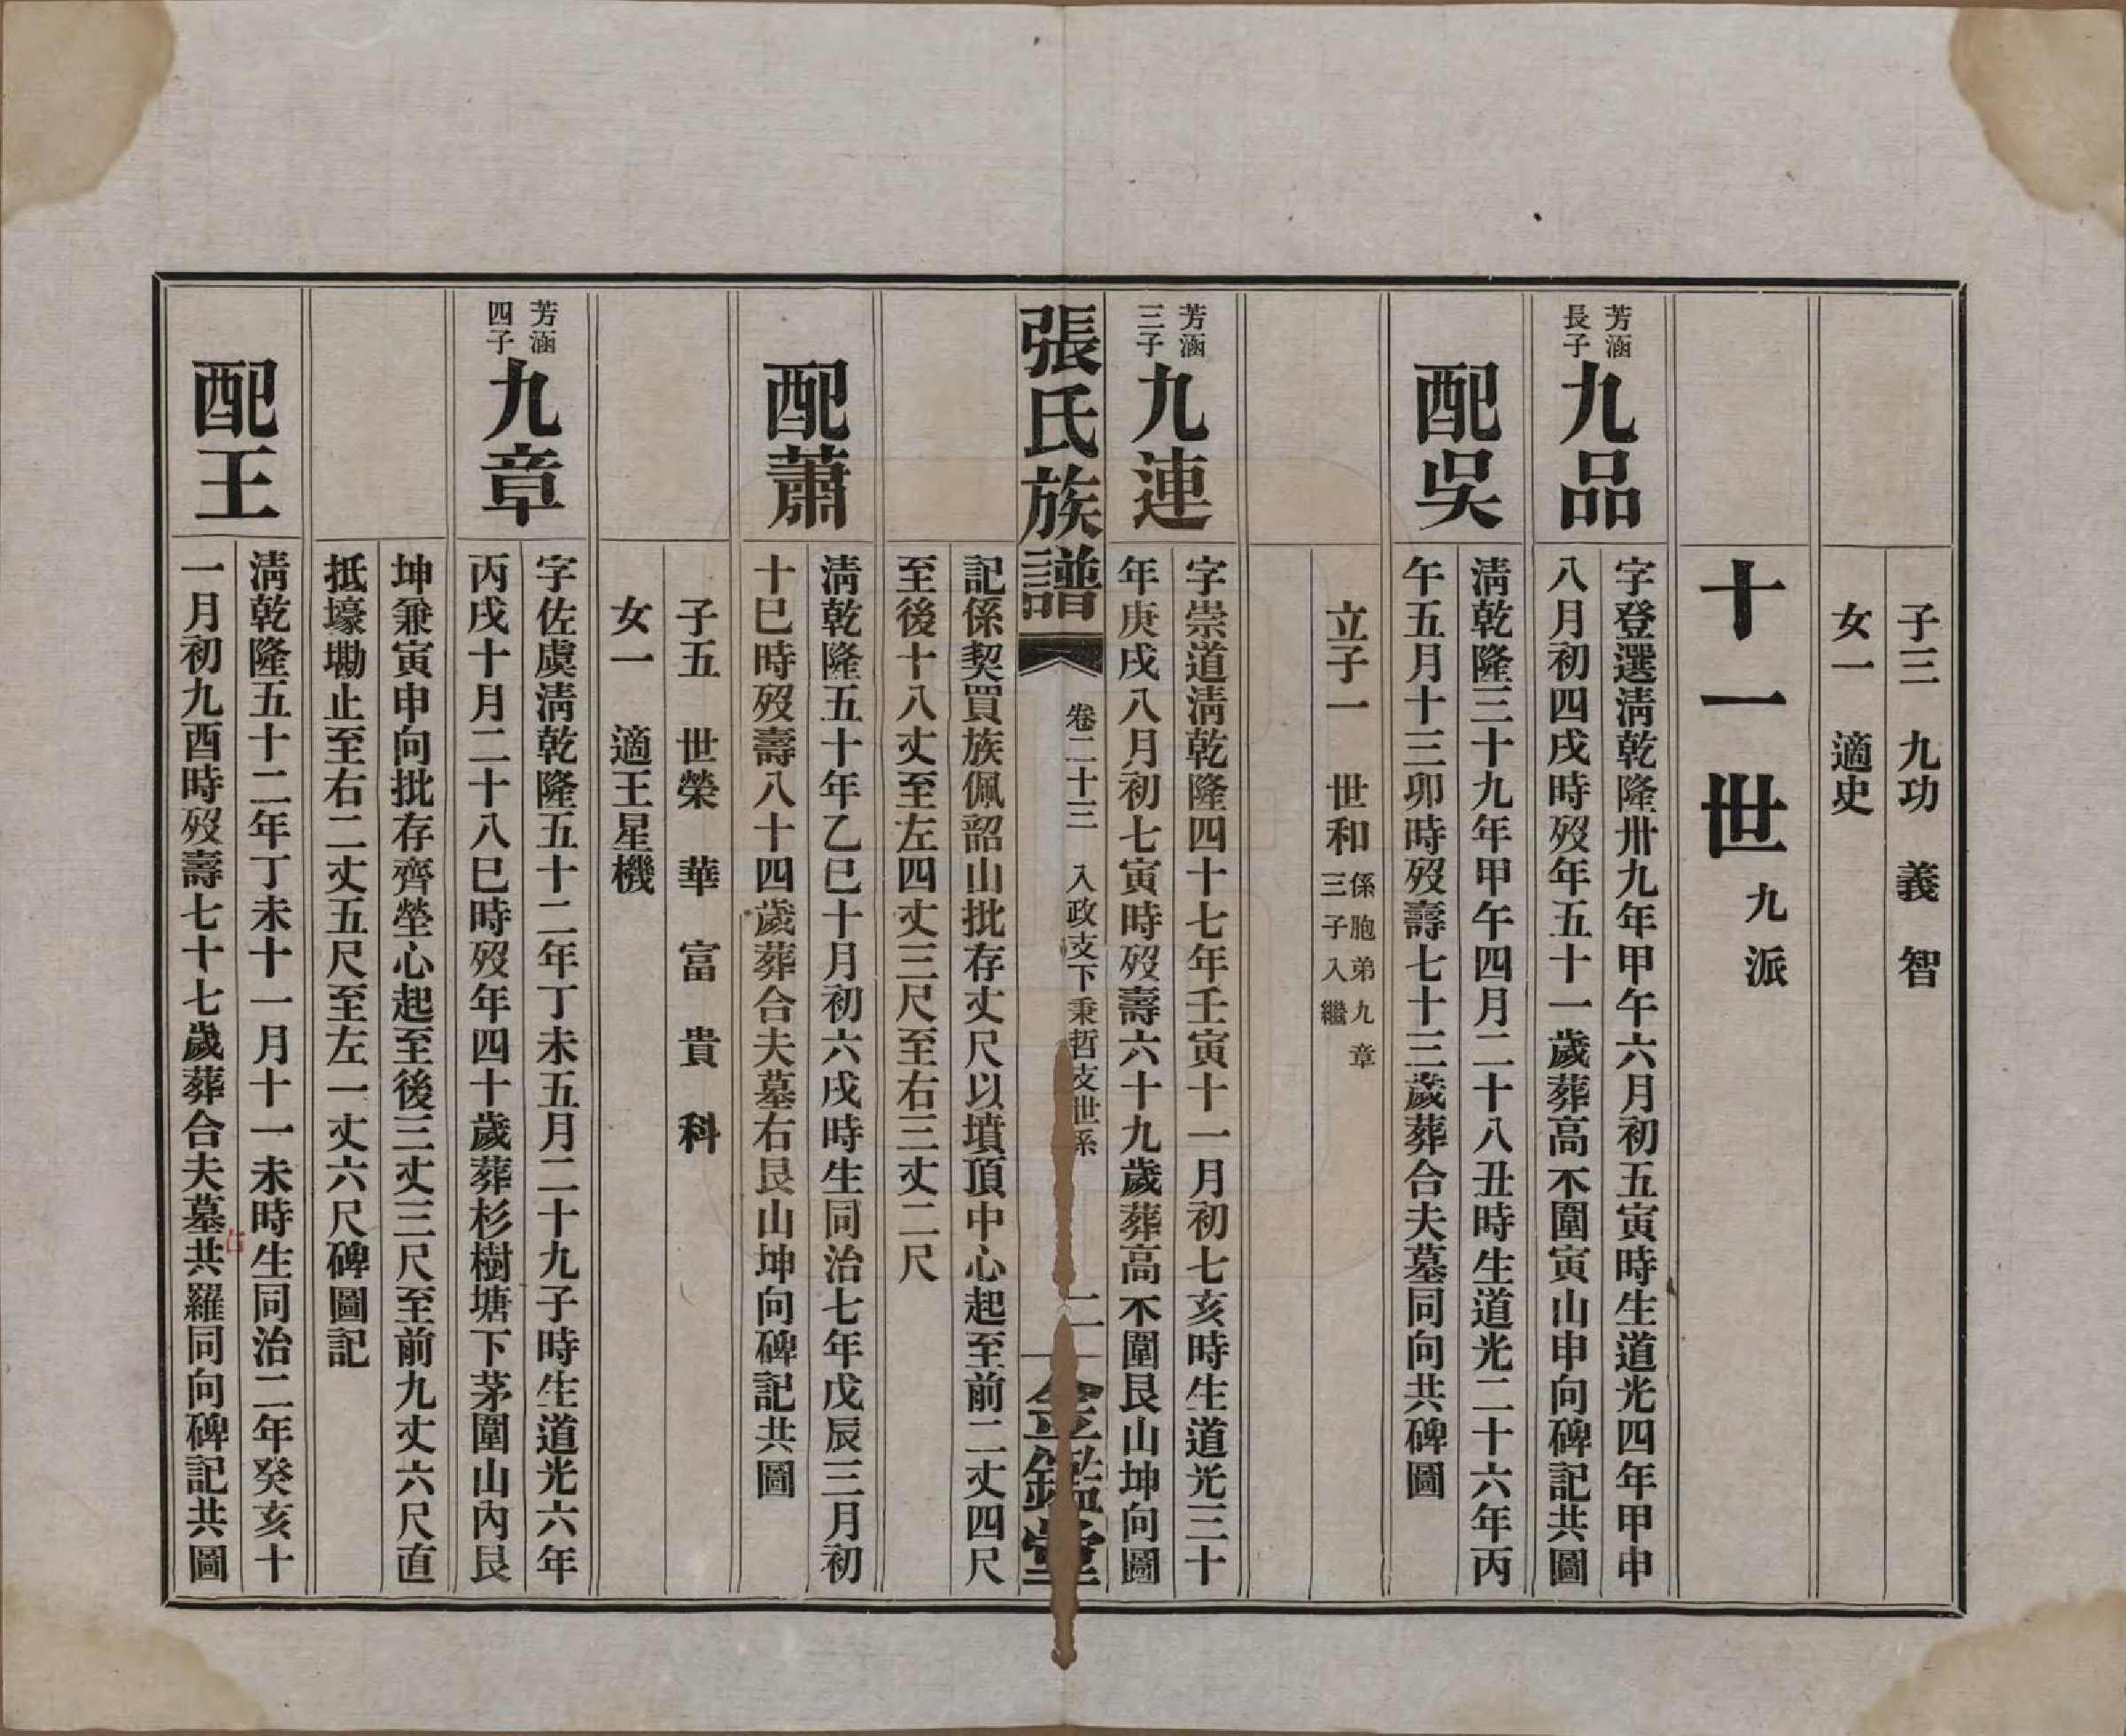 子三　九功　義　智
女一　適史
十一世九派
芳涵
長子
九品
字登選淸乾隆卅九年甲午六月初五寅時生道光四年甲申
八月初四戌時歿年五十一歲葬高不圍寅山申向碑記共圖
配吳
淸乾隆三十九年甲午四月二十八丑時生道光二十六年丙
午五月十三卯時歿壽七十三歲葬合夫墓同向共碑圖
立子一　世和
係胞弟九章
三子入繼
芳涵
三子
九連
字崇道淸乾隆四十七年壬寅十一月初七亥時生道光三十
年庚戌八月初七寅時歿壽六十九歲葬高不圍艮山坤向圖
張氏族譜
卷二十三　入政支下秉哲支世系
二
金鑑堂
記係契買族佩韶山批存丈尺以墳頂中心起至前二丈四尺
至後十八丈至左四丈三尺至右三丈二尺
配蕭
淸乾隆五十年乙巳十月初六戌時生同治七年戊辰三月初
十巳時歿壽八十四歲葬合夫墓右艮山坤向碑記共圖
子五　世榮　華　富　貴　科
女一　適王星機
芳涵
四子
九章
字佐虞淸乾隆五十二年丁未五月二十九子時生道光六年
丙戌十月二十八巳時歿年四十歲葬杉樹塘下茅圍山內艮
坤兼寅申向批存齊塋心起至後三丈三尺至前九丈六尺直
抵壕墈止至右二丈五尺至左一丈六尺碑圖記
配王
淸乾隆五十二年丁未十一月十一未時生同治二年癸亥十
一月初九酉時歿壽七十七歲葬合夫墓共羅同向碑記共圖